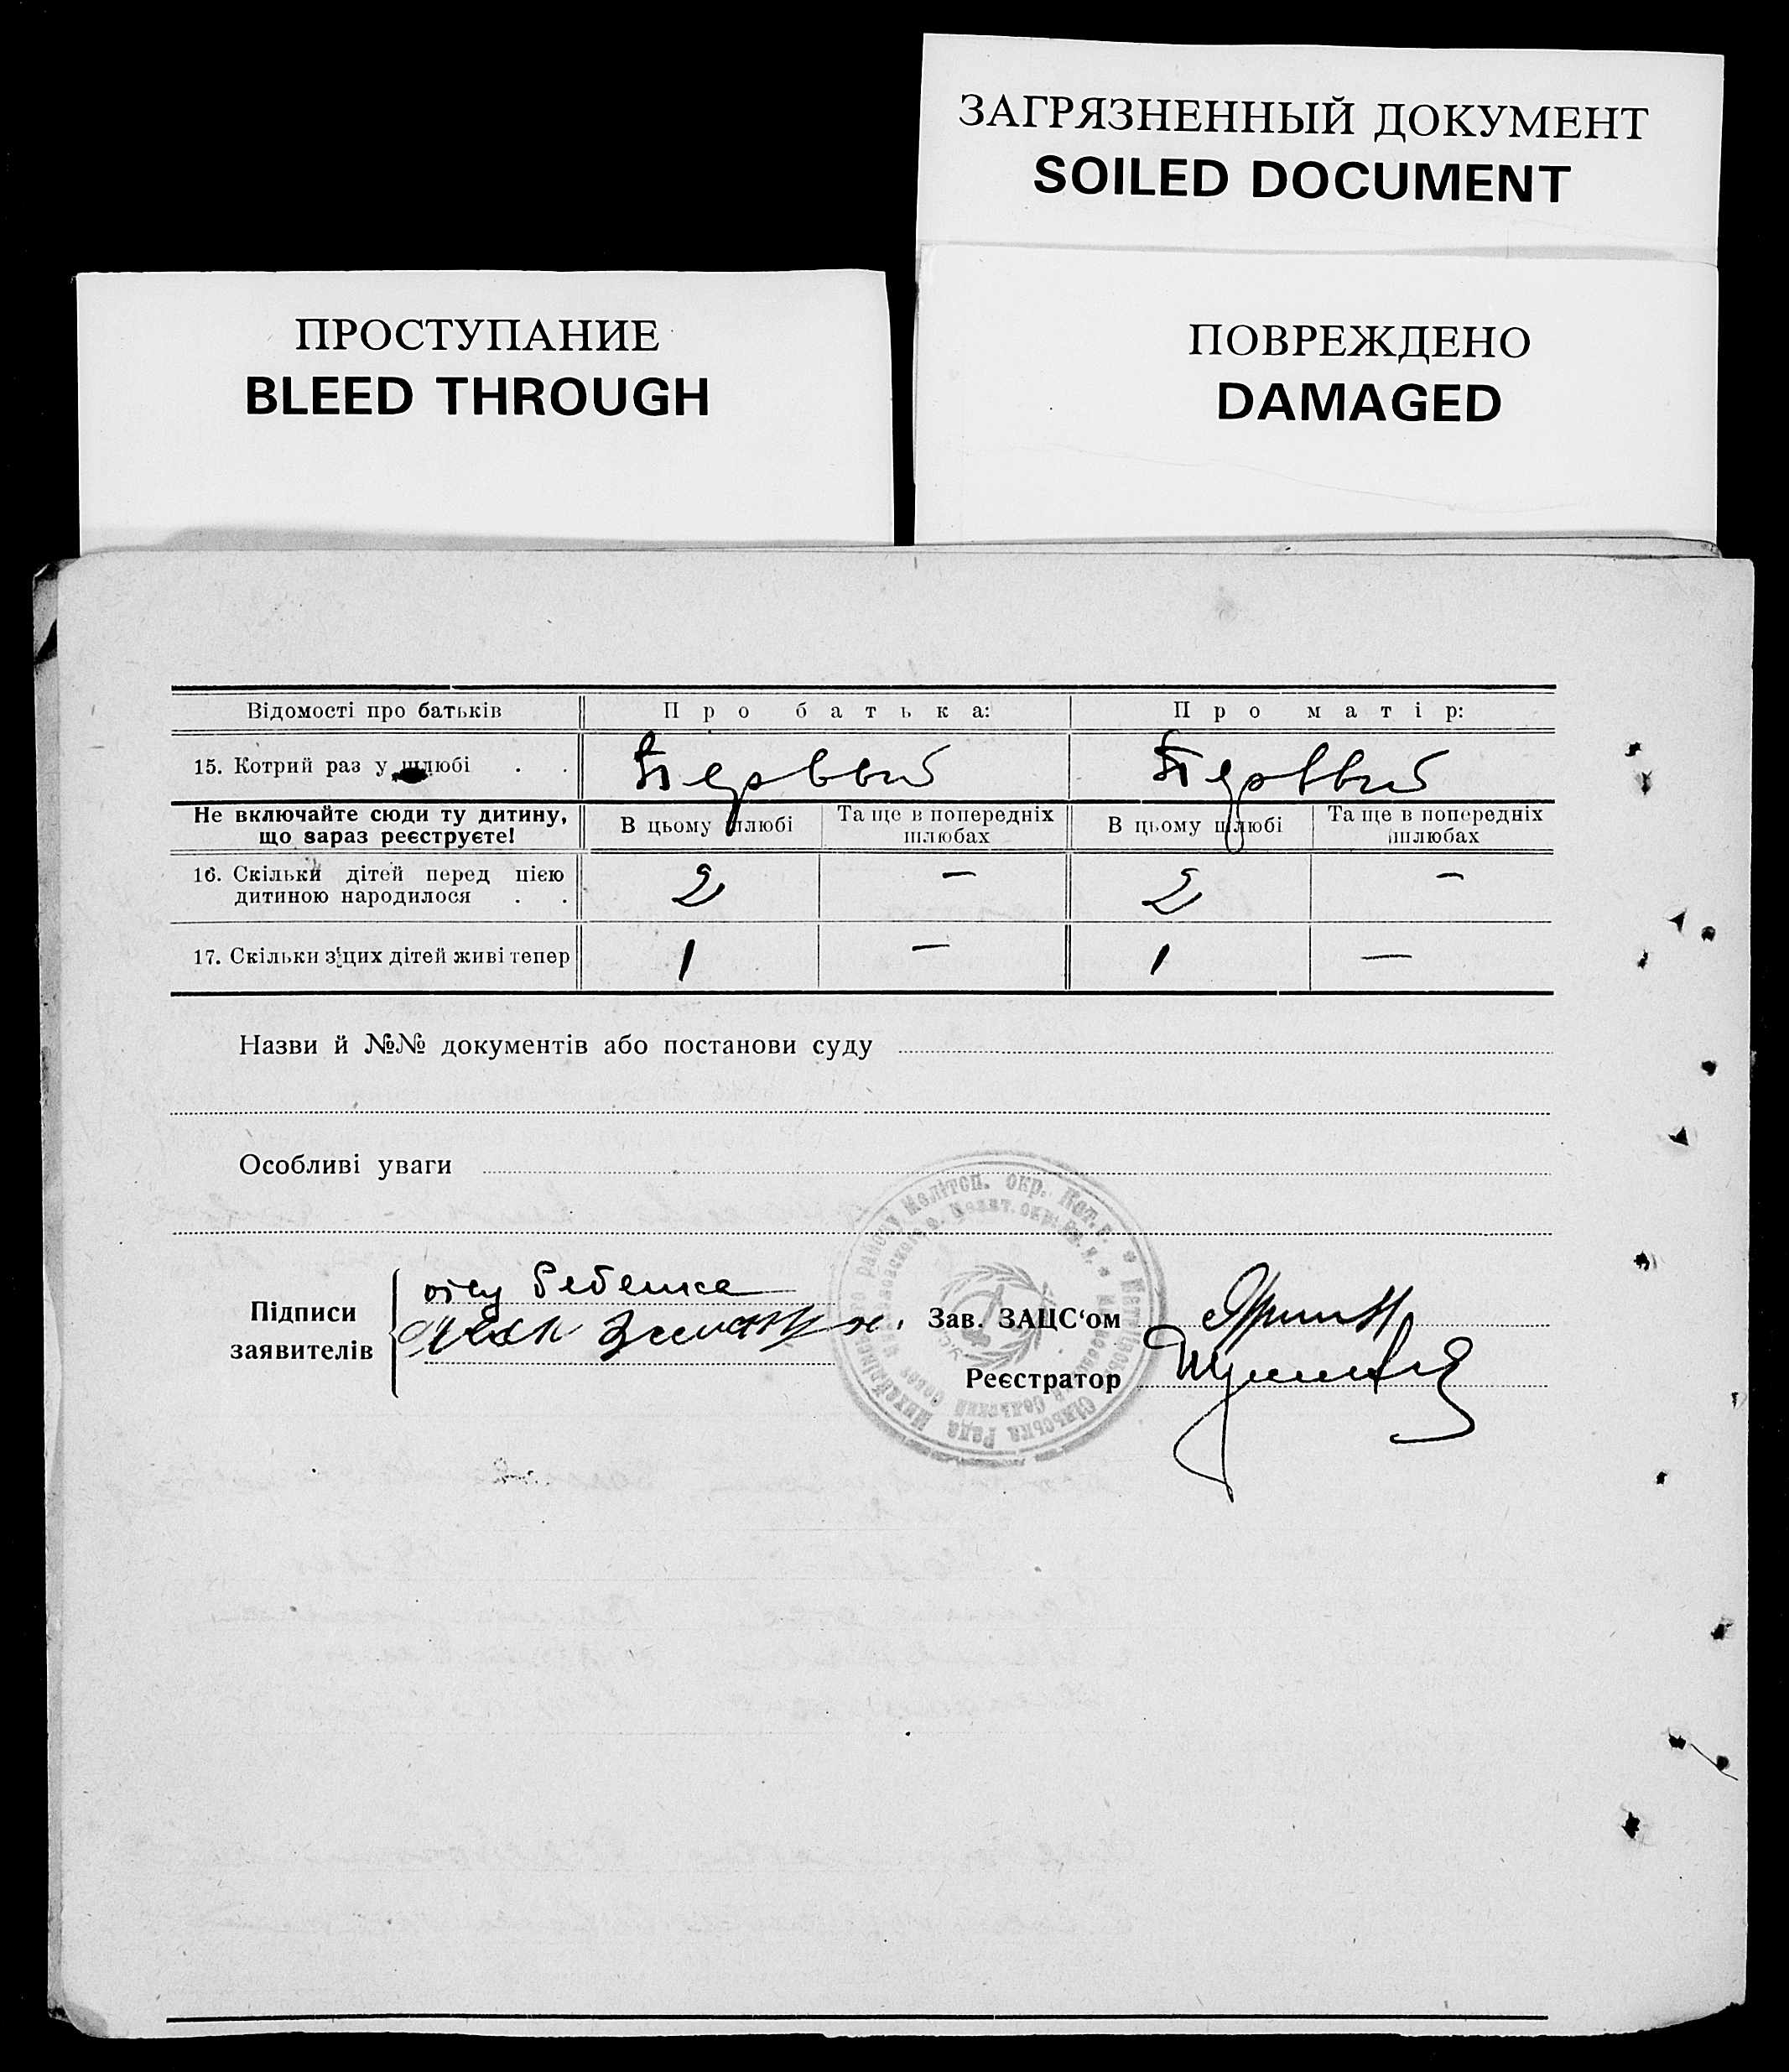 ЗАГРЯЗНЕННЫЙ ДОКУМЕНТ
SOILED DOCUMENT
ПРОСТУПАНИЕ
BLEED THROUGH
ПОВРЕЖДЕНО
DAMAGED
Відомості про батьків Про батька: Про матір:
15. Котрий раз у шлюбі . . Первый Первый
Не включайте сюди ту дитину, що зараз реєструєте! В цьому шлюбі Та ще в попередніх шлюбах В цьому шлюбі Та ще в попередніх шлюбах
16. Скільки дітей перед цією дитиною народилося . . 2 — 2 —
17. Скільки з цих дітей живі тепер 1 — 1 —
Назви й №№ документів або постанови суду
Особливі уваги
отец ребенка
Підписи заявителів
Зав. ЗАЦС‘ом
Реєстратор
Сільська Рада Михайлівського району Мелітоп. окр.